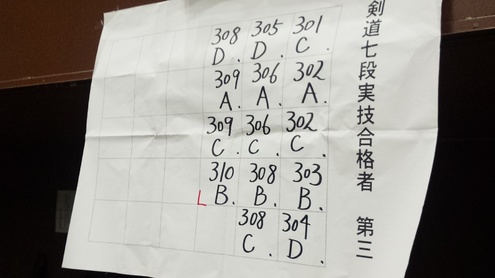 剣道七段実技合格者 第三
301 C.
302 A.
302 C.
303 B.
304 D.
305 D.
306 A.
306 C.
308 B.
308 C.
308 D.
309 A.
309 C.
310 B.